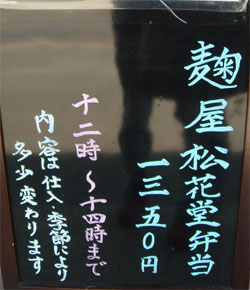 麹屋松花堂弁当
一三五〇円
十二時～十四時まで
内容は仕入・季節により
多少変わります